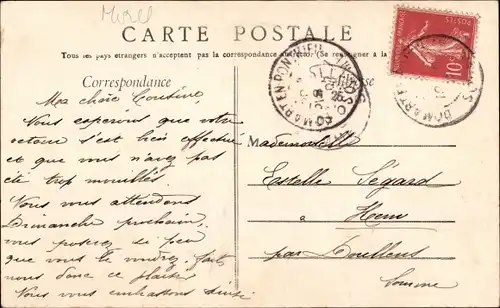 CARTE POSTALE
Tous les pays étrangers n'acceptent pas la correspondance au recto. (Se renseigner à la
Correspondance
Ma chère Cousine,
Nous esperons que votre
retour s'est bien effectué
et que vous n'avez pas
été trop mouillés
Nous vous attendons
Dimanche prochain,
vous pouvez si peu
que vous le voudrez. faites
nous donc ce plaisir
Nous vous embrassons
Mademoiselle
Estelle Ségard
à Hem
par Doullens
Somme
POSTES
10
DOMART EN PONTHIEU